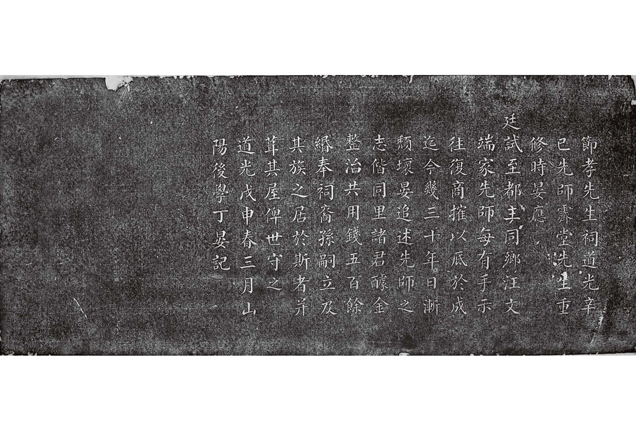 節孝先生祠道光辛
巳先師霽堂先生重
修時晏應
廷試至都主同鄉汪文
端家先師每有手示
往復商搉以底於成
迄今幾三十年日漸
頹壞晏追述先師之
志偕同里諸君醵金
整治共用錢五百餘
緡奉祠裔孫嗣立及
其族之居於斯者并
葺其屋俾世守之
道光戊申春三月山
陽後學丁晏記